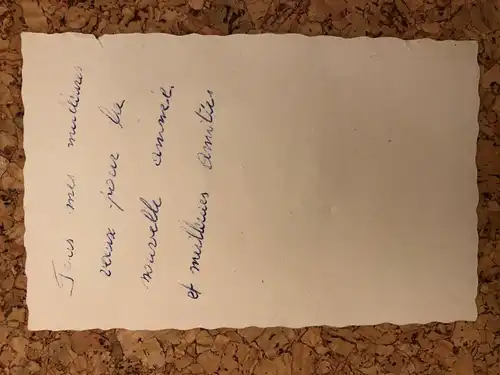 Tous mes meilleures
vœux pour la
nouvelle année
et meilleures amitiés